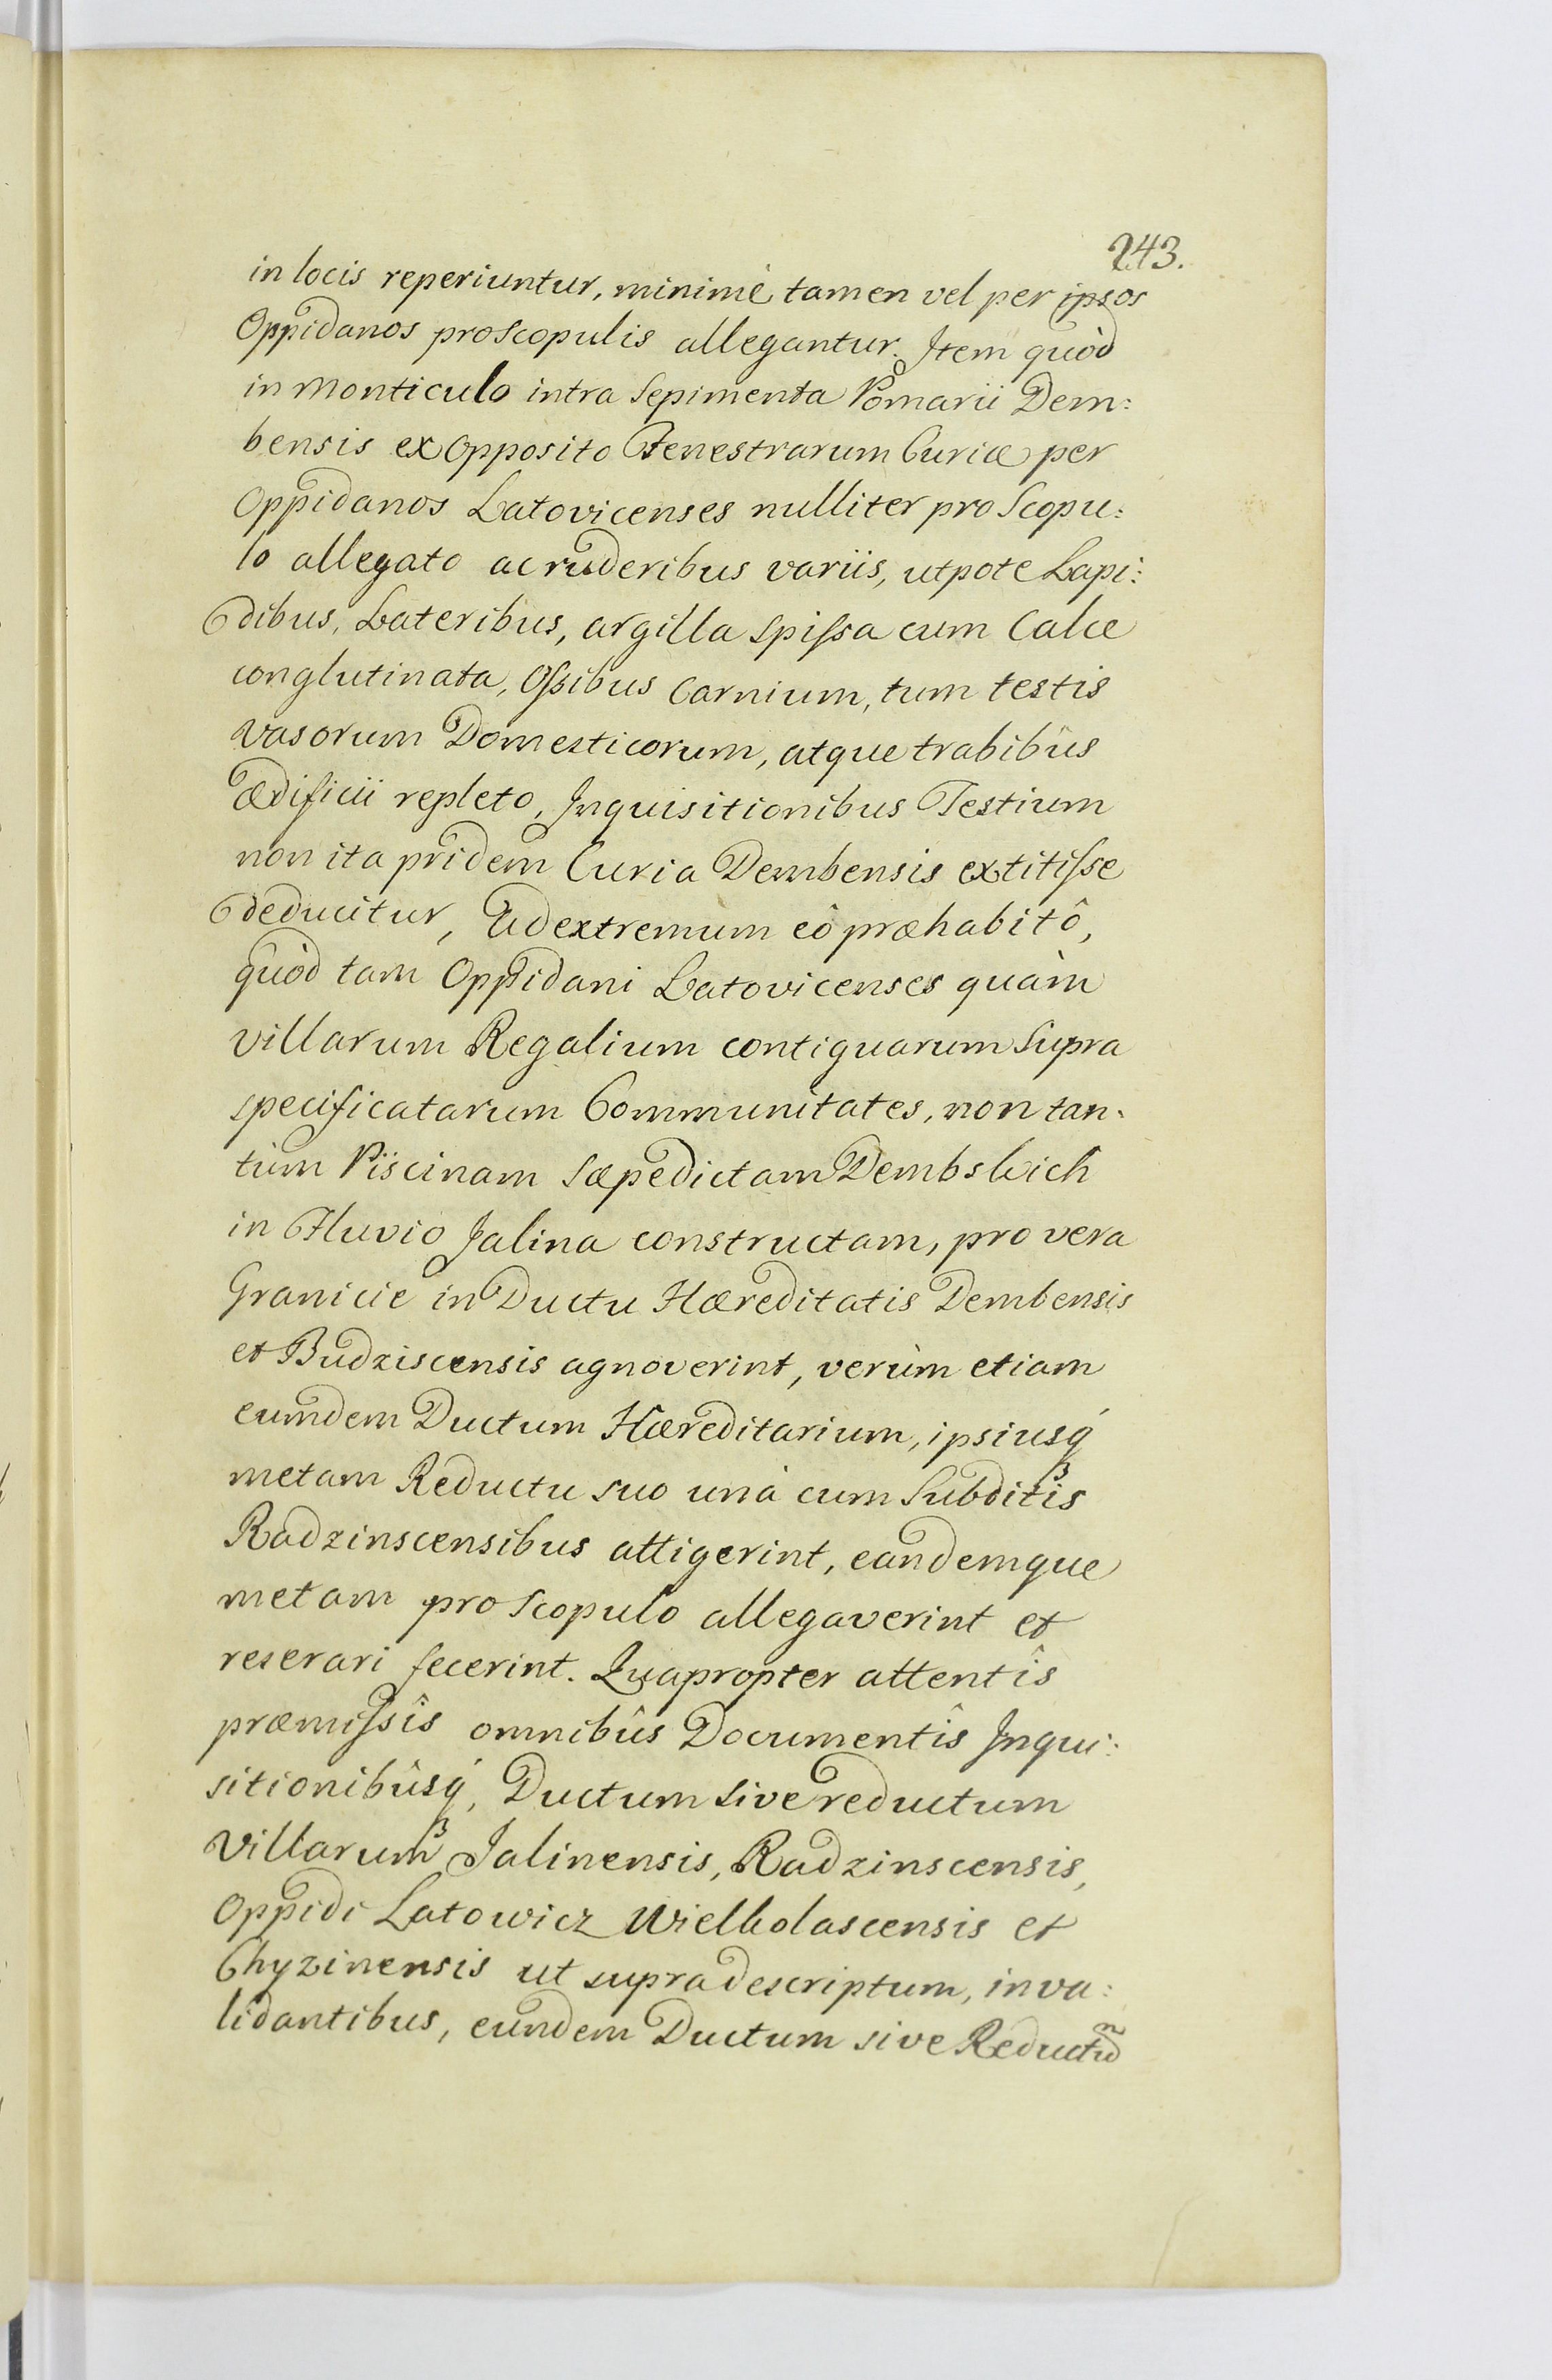 243.
in locis reperiuntur, minimè tamen vel per ipsos
Oppidanos pro scopulis allegantur. Item quòd
in Monticulo intra Sepimenta Pomarii Dem:
bensis ex opposito Fenestrarum Curiæ per
Oppidanos Latovicenses nulliter pro Scopu:
lo allegato ac ruderibus variis, utpote Lapi:
dibus, Lateribus, argilla spissa cum Calce
conglutinata, Ossibus Carnium, tum testis
vasorum Domesticorum, atque trabibûs
ædificii repleto, Inquisitionibus Testium
non ita pridem Curia Dembensis extitisse
deducitur, Ad extremum eô præhabitô,
quòd tam Oppidani Latovicenses quàm
villarum Regalium contiguarum Supra
specificatarum Communitates, non tan:
tùm Piscinam Sæpedictam Dembskich
in Fluvio Jalina constructam, pro vera
Granicie in Ductu Hæreditatis Dembensis
et Budziscensis agnoverint, verùm etiam
eumdem Ductum Hæreditarium, ipsiusq́ꝫ
metam Reductu suo unà cum Subditis
Radzinscensibus attigerint, eandemque
metam pro Scopulo allegaverint et
reserari fecerint. Quapropter attentîs
præmissîs omnibûs Documentîs Inqui:
sitionibûsq́ꝫ, Ductum sive reductum
Villarum Jalinensis, Radzinscensis,
Oppidi Latowicz Wielkolascensis et
Chyzinensis ut supra descriptum, inva:
lidantibus, eundem Ductum sive Reductũ